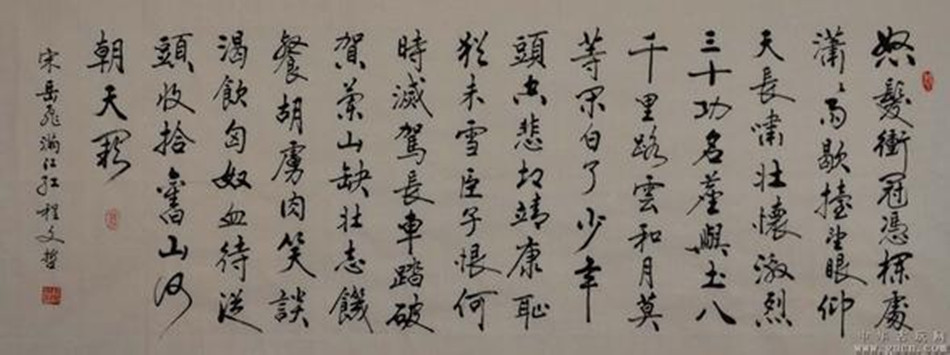 怒髮衝冠憑欄處
瀟〻雨歇擡望眼仰
天長嘯壯懷激烈
三十功名塵與土八
千里路雲和月莫
等閑白了少年
頭空悲切靖康恥
猶未雪臣子恨何
時滅駕長車踏破
賀蘭山缺壯志饑
餐胡虜肉笑談
渴飲匈奴血待從
頭收拾舊山河
朝天闕
宋岳飛滿江紅程文哲
中华古玩网
www.gucn.com